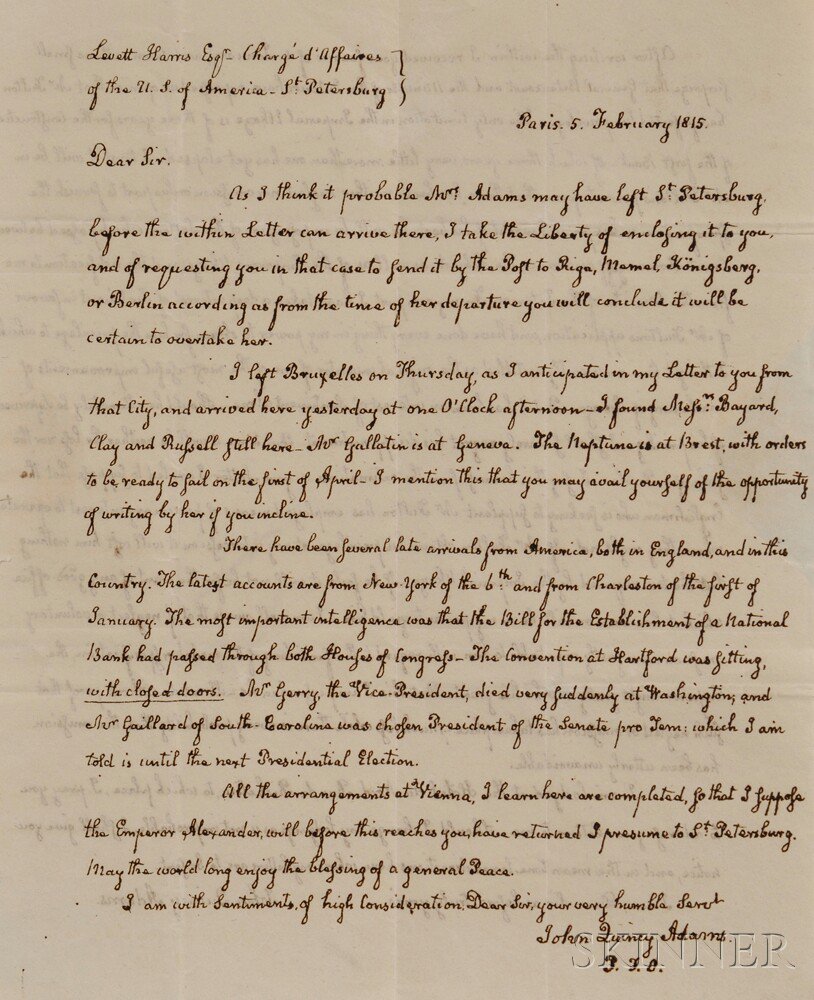 Levett Harris Esqr. Chargé d'Affaires
of the U. S. of America - St. Petersburg
Paris. 5. February 1815.
Dear Sir.
As I think it probable Mrs. Adams may have left St. Petersburg,
before the within Letter can arrive there, I take the Liberty of enclosing it to you,
and of requesting you in that case to send it by the Post to Riga, Memel, Königsberg,
or Berlin according as from the time of her departure you will conclude it will be
certain to overtake her.
I left Bruxelles on Thursday, as I anticipated in my Letter to you from
that City, and arrived here yesterday at one O'Clock afternoon - I found Messrs. Bayard,
Clay and Russell still here - Mr Gallatin is at Geneva. The Neptune is at Brest, with orders
to be ready to sail on the first of April - I mention this that you may avail yourself of the opportunity
of writing by her if you incline.
There have been several late arrivals from America, both in England, and in this
Country. The latest accounts are from New-York of the 6th. and from Charleston of the first of
January. The most important intelligence was that the Bill for the Establishment of a National
Bank had passed through both Houses of Congress - The Convention at Hartford was sitting,
with closed doors. Mr. Gerry, the Vice-President, died very suddenly at Washington; and
Mr Gaillard of South-Carolina was chosen President of the Senate pro Tem: which I am
told is until the next Presidential Election.
All the arrangements at Vienna, I learn here are completed, so that I suppose
the Emperor Alexander, will before this reaches you, have returned I presume to St. Petersburg.
May the world long enjoy the blessing of a general Peace.
I am with Sentiments, of high Consideration, Dear Sir, your very humble Servt
John Quincy Adams.
P. T. O.
SKINNER